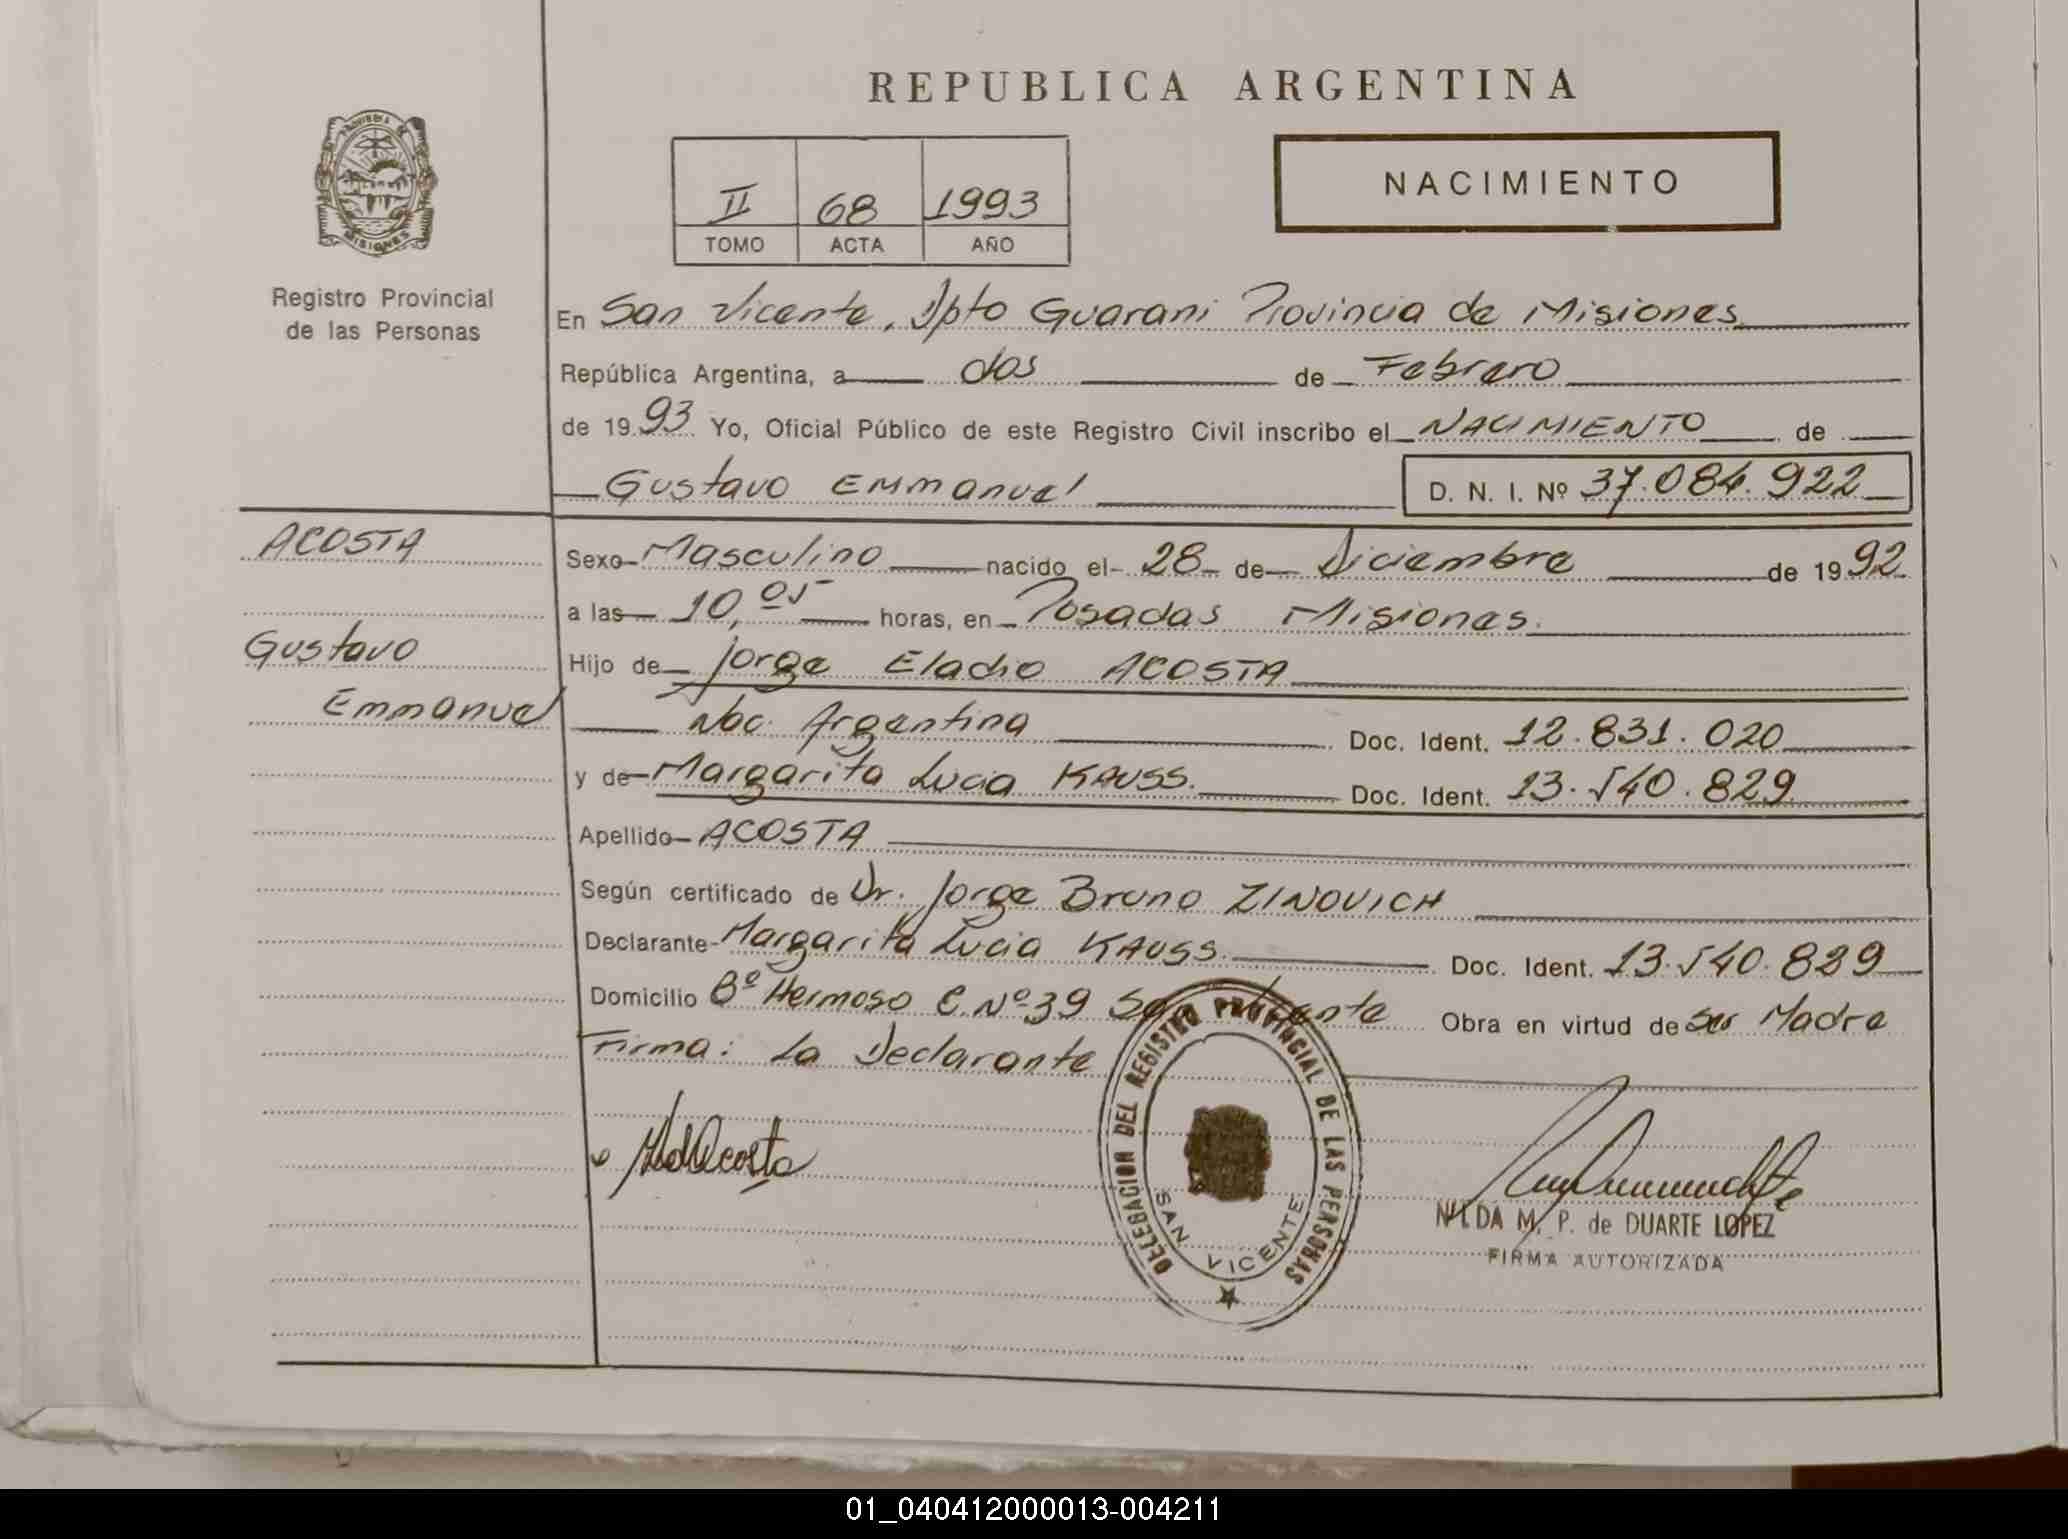 REPUBLICA ARGENTINA
NACIMIENTO
II 68 1993
TOMO ACTA AÑO
PROVINCIA DE
MISIONES
Registro Provincial
de las Personas
En San Vicente, Dpto Guarani Provincia de Misiones
República Argentina, a dos de Febrero
de 1993 Yo, Oficial Público de este Registro Civil inscribo el NACIMIENTO de
Gustavo Emmanuel D. N. I. Nº 37.084.922
ACOSTA
Gustavo
Emmanuel
Sexo Masculino nacido el 28 de Diciembre de 1992
a las 10,05 horas, en Posadas Misiones.
Hijo de Jorge Eladio ACOSTA
Nac. Argentina Doc. Ident. 12.831.020
y de Margarita Lucia KAUSS. Doc. Ident. 13.540.829
Apellido ACOSTA
Según certificado de Dr. Jorge Bruno ZINOVICH
Declarante Margarita Lucia KAUSS. Doc. Ident. 13.540.829
Domicilio Bº Hermoso C. Nº 39 San Vicente Obra en virtud de ser Madre
Firma: La Declarante
DELEGACION DEL REGISTRO PROVINCIAL DE LAS PERSONAS
SAN VICENTE
NILDA M. P. de DUARTE LOPEZ
FIRMA AUTORIZADA
01_040412000013-004211